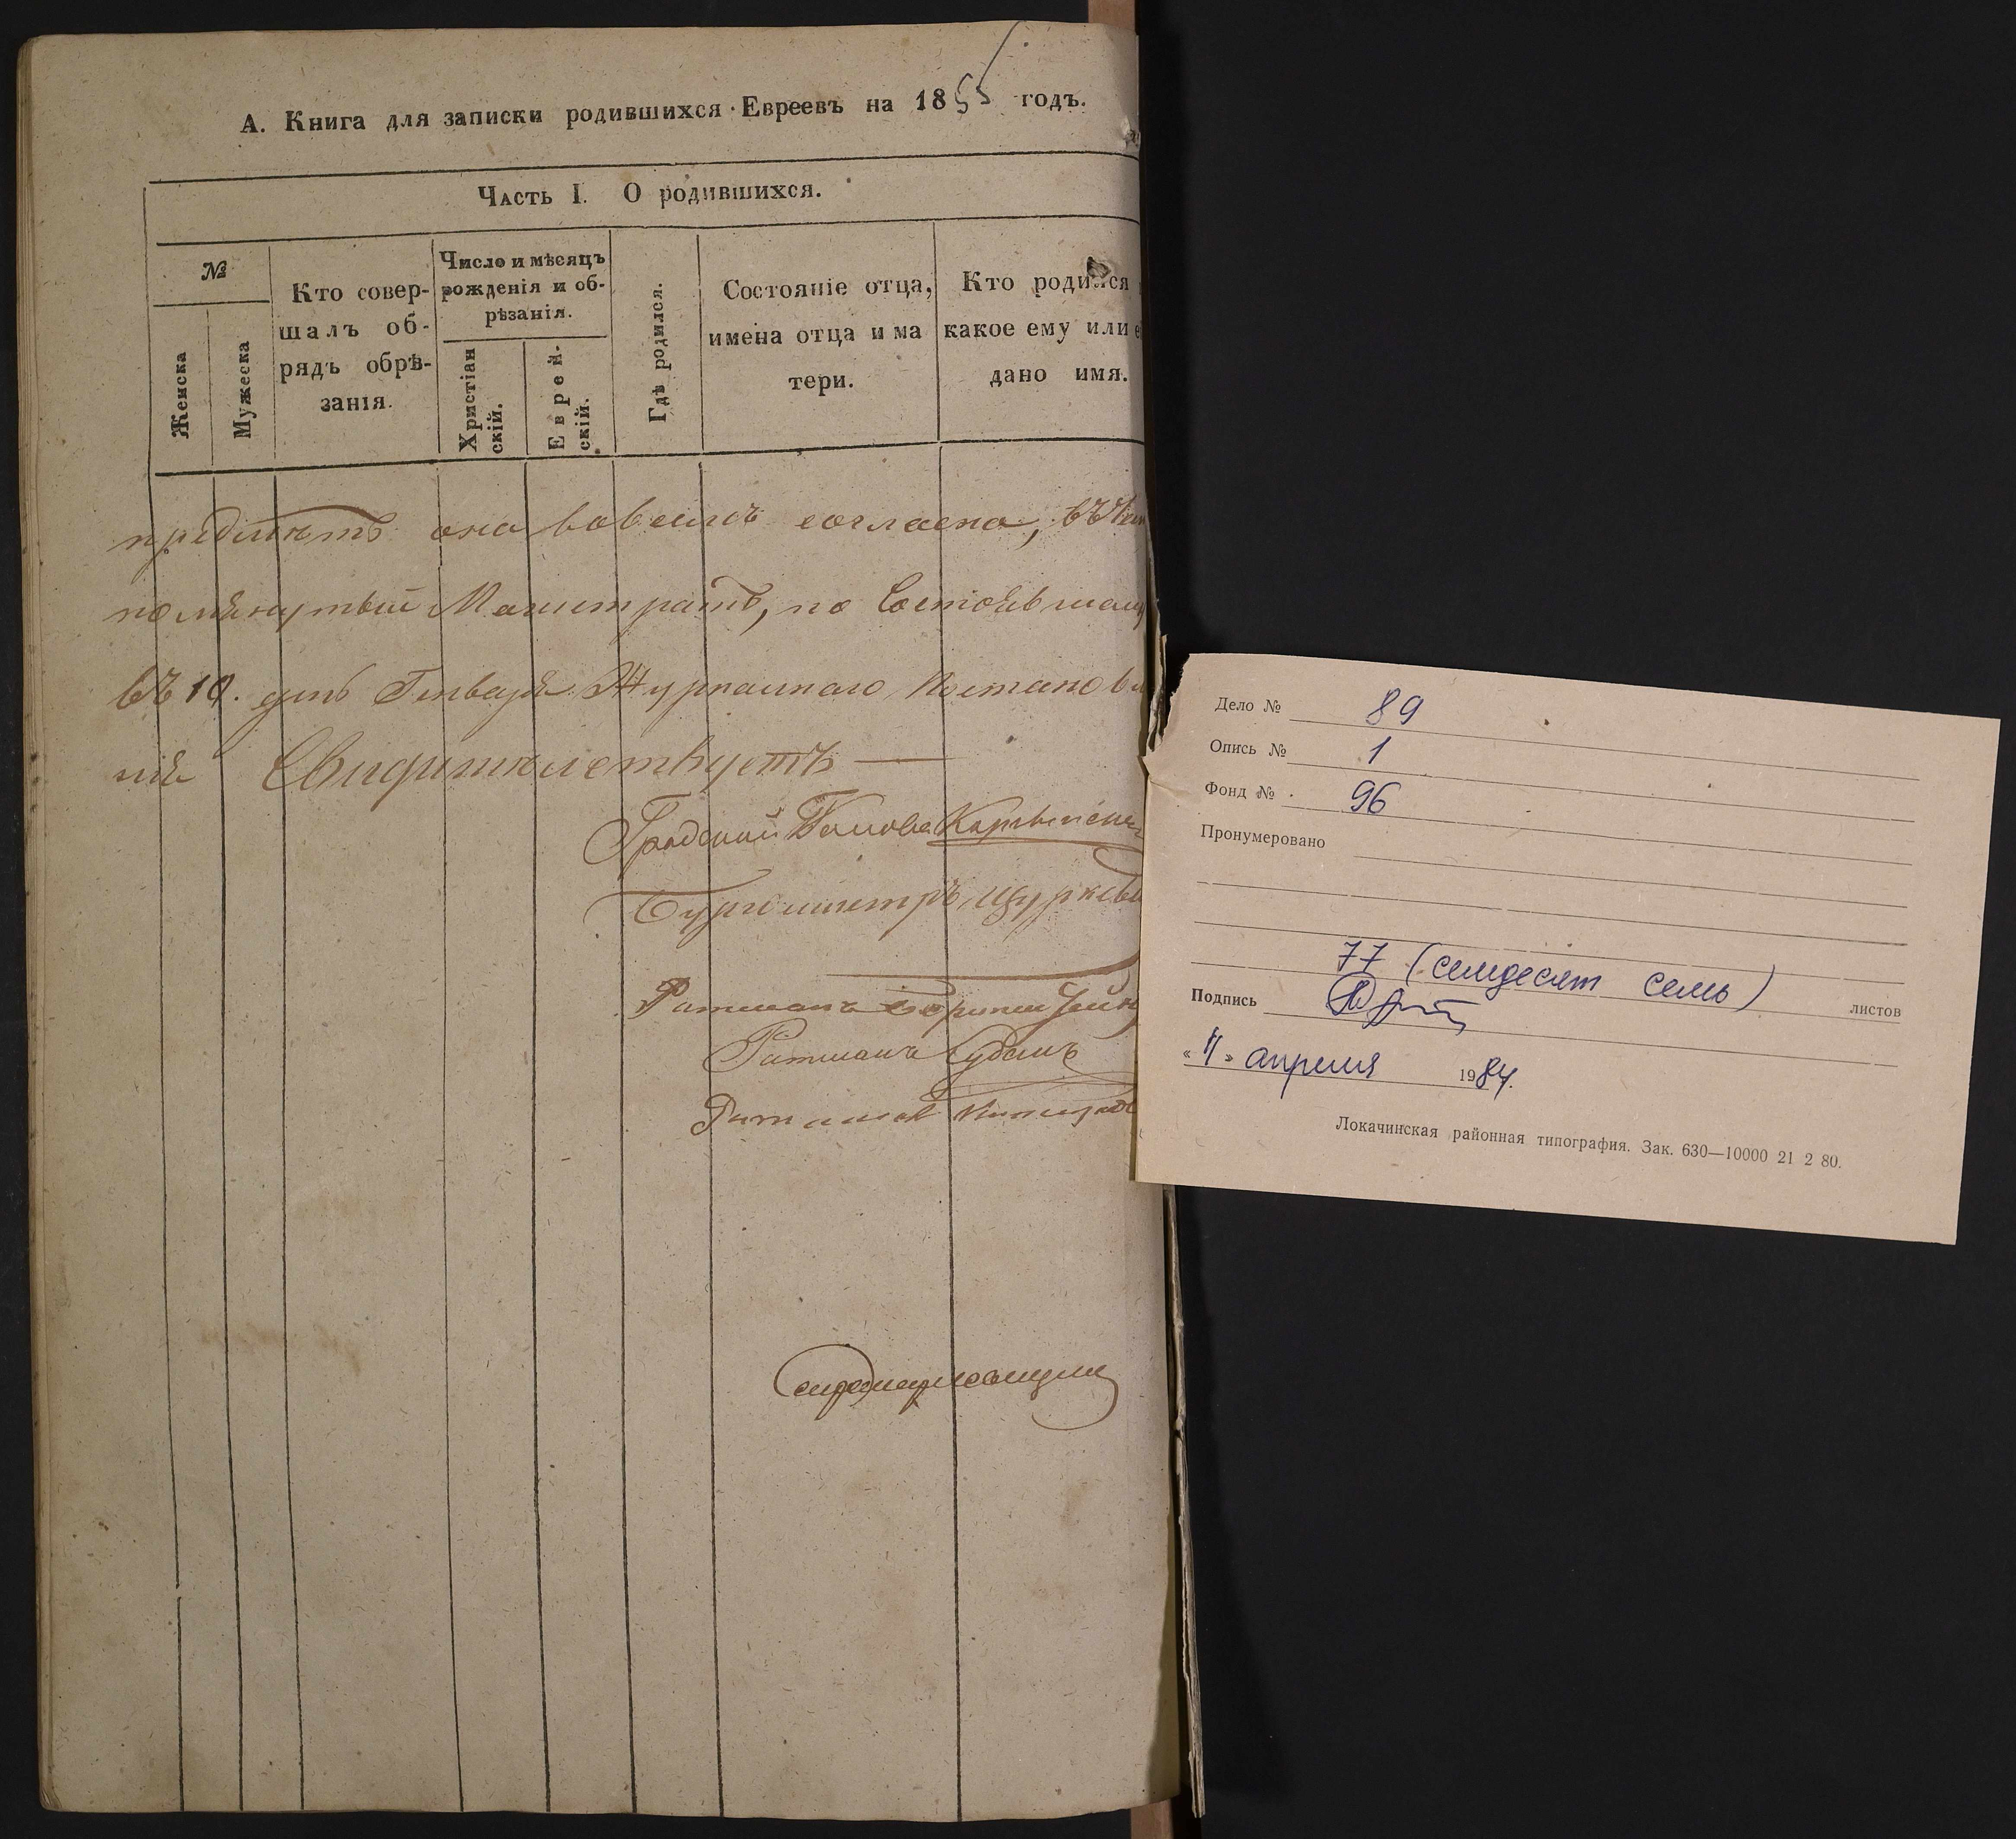 А. Книга для записки родившихся Евреевъ на 1855 годъ.
Часть I. О родившихся.
№
Женска
Мужеска
Кто совер-
шалъ об-
рядъ обрѣ-
занія.
Число и мѣсяцъ
рожденія и об-
рѣзанія.
Христіан
скій.
Еврей-
скій.
Гдѣ родился.
Состояніе отца,
имена отца и ма
тери.
Кто родился
какое ему или
дано имя.
предметъ она вовсемъ согласна, въ
помянутый Магистратъ, по состоявшему
въ 10. день Генваря Журнальнаго Постановле
нія Свидѣтельствуетъ —
Градский Голова
Бургомистръ
Ратманъ
Ратманъ
Ратманъ
Дело № 89
Опись № 1
Фонд № 96
Пронумеровано
77 (семдесят семь) листов
Подпись
«11» апреля 1984.
Локачинская районная типография. Зак. 630—10000 21 2 80.